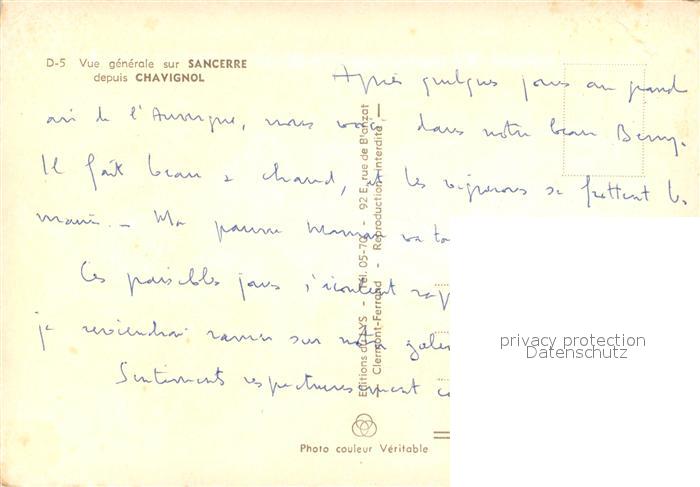 D-5 Vue générale sur SANCERRE
depuis CHAVIGNOL
Après quelques jours au grand
air de l'Auvergne, nous voici dans notre beau Berry.
Il fait beau & chaud, et les vignerons se frottent les
mains. - Ma pauvre Maman va
Ces paisibles jours s'écoulent
je reviendrai ramer sur notre
Sentiments respectueusement
Editions du LYS - Tél. 05-70 - 92 E, rue de Blanzat
Clermont-Ferrand - Reproduction interdite
Photo couleur Véritable
privacy protection
Datenschutz